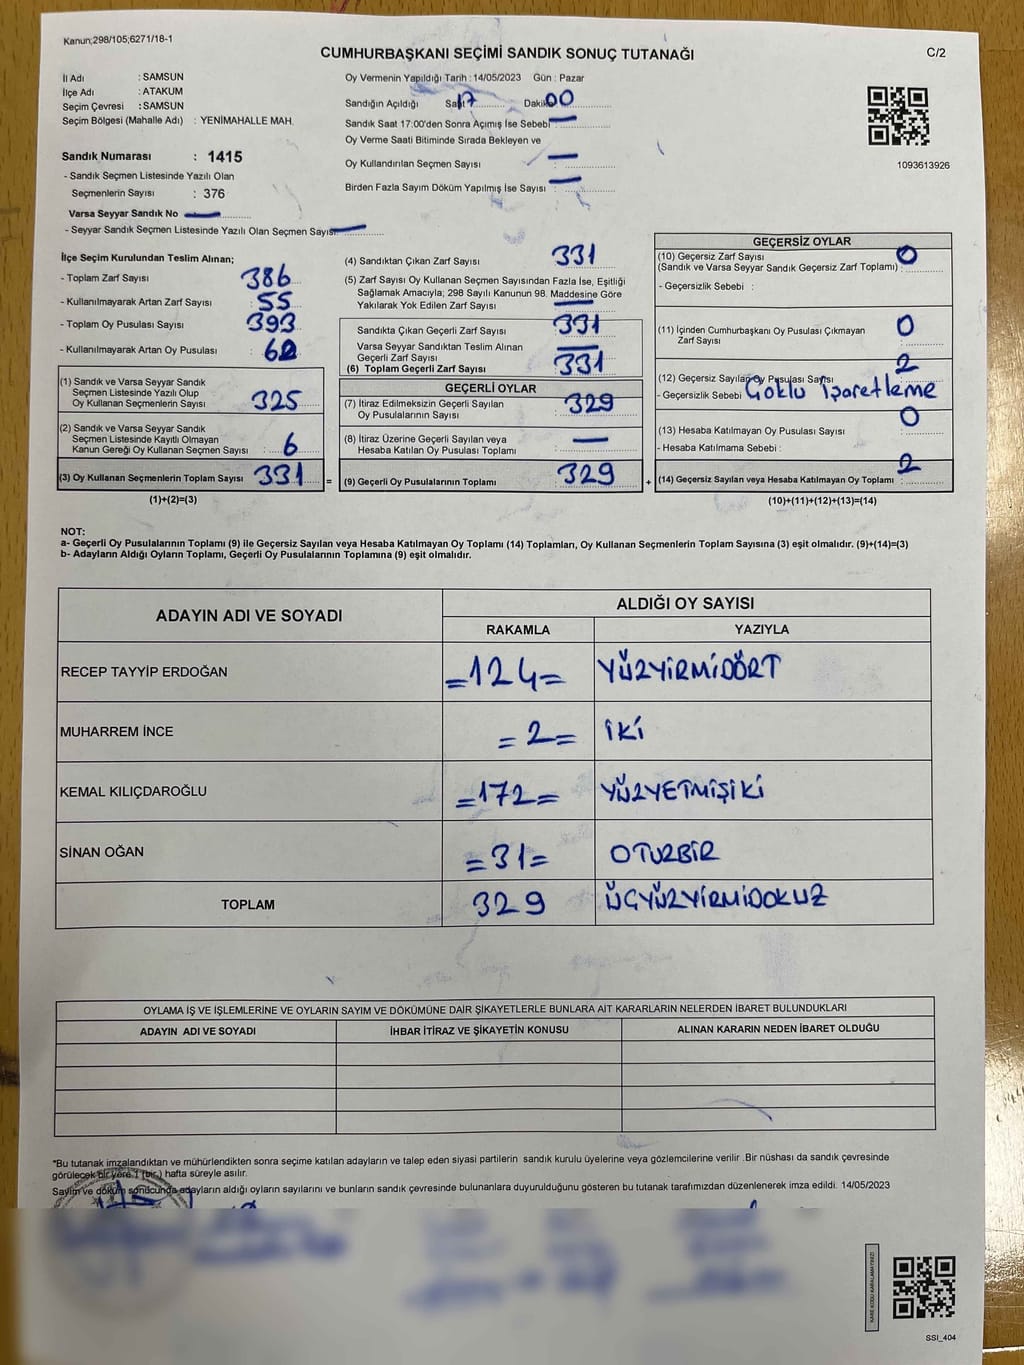 Kanun;298/105;6271/18-1
CUMHURBAŞKANI SEÇİMİ SANDIK SONUÇ TUTANAĞI
C/2
İl Adı : SAMSUN
İlçe Adı : ATAKUM
Seçim Çevresi : SAMSUN
Seçim Bölgesi (Mahalle Adı) : YENİMAHALLE MAH.
Sandık Numarası : 1415
- Sandık Seçmen Listesinde Yazılı Olan
Seçmenlerin Sayısı : 376
Varsa Seyyar Sandık No —
- Seyyar Sandık Seçmen Listesinde Yazılı Olan Seçmen Sayısı: —
Oy Vermenin Yapıldığı Tarih : 14/05/2023 Gün : Pazar
Sandığın Açıldığı Saat 17 Dakika 00
Sandık Saat 17:00'den Sonra Açımış İse Sebebi : —
Oy Verme Saati Bitiminde Sırada Bekleyen ve
Oy Kullandırılan Seçmen Sayısı : —
Birden Fazla Sayım Döküm Yapılmış İse Sayısı : —
1093613926
İlçe Seçim Kurulundan Teslim Alınan;
- Toplam Zarf Sayısı : 386
- Kullanılmayarak Artan Zarf Sayısı : 55
- Toplam Oy Pusulası Sayısı : 393
- Kullanılmayarak Artan Oy Pusulası : 62
(1) Sandık ve Varsa Seyyar Sandık
Seçmen Listesinde Yazılı Olup
Oy Kullanan Seçmenlerin Sayısı : 325
(2) Sandık ve Varsa Seyyar Sandık
Seçmen Listesinde Kayıtlı Olmayan
Kanun Gereği Oy Kullanan Seçmen Sayısı : 6
(3) Oy Kullanan Seçmenlerin Toplam Sayısı : 331
(1)+(2)=(3)
(4) Sandıktan Çıkan Zarf Sayısı : 331
(5) Zarf Sayısı Oy Kullanan Seçmen Sayısından Fazla İse, Eşitliği
Sağlamak Amacıyla; 298 Sayılı Kanunun 98. Maddesine Göre
Yakılarak Yok Edilen Zarf Sayısı : —
Sandıkta Çıkan Geçerli Zarf Sayısı : 331
Varsa Seyyar Sandıktan Teslim Alınan
Geçerli Zarf Sayısı : —
(6) Toplam Geçerli Zarf Sayısı : 331
GEÇERLİ OYLAR
(7) İtiraz Edilmeksizin Geçerli Sayılan
Oy Pusulalarının Sayısı : 329
(8) İtiraz Üzerine Geçerli Sayılan veya
Hesaba Katılan Oy Pusulası Toplamı : —
= (9) Geçerli Oy Pusulalarının Toplamı : 329
GEÇERSİZ OYLAR
(10) Geçersiz Zarf Sayısı
(Sandık ve Varsa Seyyar Sandık Geçersiz Zarf Toplamı) : 0
- Geçersizlik Sebebi :
(11) İçinden Cumhurbaşkanı Oy Pusulası Çıkmayan
Zarf Sayısı : 0
(12) Geçersiz Sayılan Oy Pusulası Sayısı : 2
- Geçersizlik Sebebi Çoklu İşaretleme
(13) Hesaba Katılmayan Oy Pusulası Sayısı : 0
- Hesaba Katılmama Sebebi :
+ (14) Geçersiz Sayılan veya Hesaba Katılmayan Oy Toplamı : 2
(10)+(11)+(12)+(13)=(14)
NOT:
a- Geçerli Oy Pusulalarının Toplamı (9) ile Geçersiz Sayılan veya Hesaba Katılmayan Oy Toplamı (14) Toplamları, Oy Kullanan Seçmenlerin Toplam Sayısına (3) eşit olmalıdır. (9)+(14)=(3)
b- Adayların Aldığı Oyların Toplamı, Geçerli Oy Pusulalarının Toplamına (9) eşit olmalıdır.
ADAYIN ADI VE SOYADI ALDIĞI OY SAYISI
RAKAMLA YAZIYLA
RECEP TAYYİP ERDOĞAN =124= YÜZYİRMİDÖRT
MUHARREM İNCE =2= İKİ
KEMAL KILIÇDAROĞLU =172= YÜZYETMİŞİKİ
SİNAN OĞAN =31= OTUZBİR
TOPLAM 329 ÜÇYÜZYİRMİDOKUZ
OYLAMA İŞ VE İŞLEMLERİNE VE OYLARIN SAYIM VE DÖKÜMÜNE DAİR ŞİKAYETLERLE BUNLARA AİT KARARLARIN NELERDEN İBARET BULUNDUKLARI
ADAYIN ADI VE SOYADI İHBAR İTİRAZ VE ŞİKAYETİN KONUSU ALINAN KARARIN NEDEN İBARET OLDUĞU
*Bu tutanak imzalandıktan ve mühürlendikten sonra seçime katılan adayların ve talep eden siyasi partilerin sandık kurulu üyelerine veya gözlemcilerine verilir .Bir nüshası da sandık çevresinde
görülecek bir yere 1 (bir.) hafta süreyle asılır.
Sayım ve döküm sonucunda adayların aldığı oyların sayılarını ve bunların sandık çevresinde bulunanlara duyurulduğunu gösteren bu tutanak tarafımızdan düzenlenerek imza edildi. 14/05/2023
KARE KODU KARALAMAYINIZ!
SSI_404